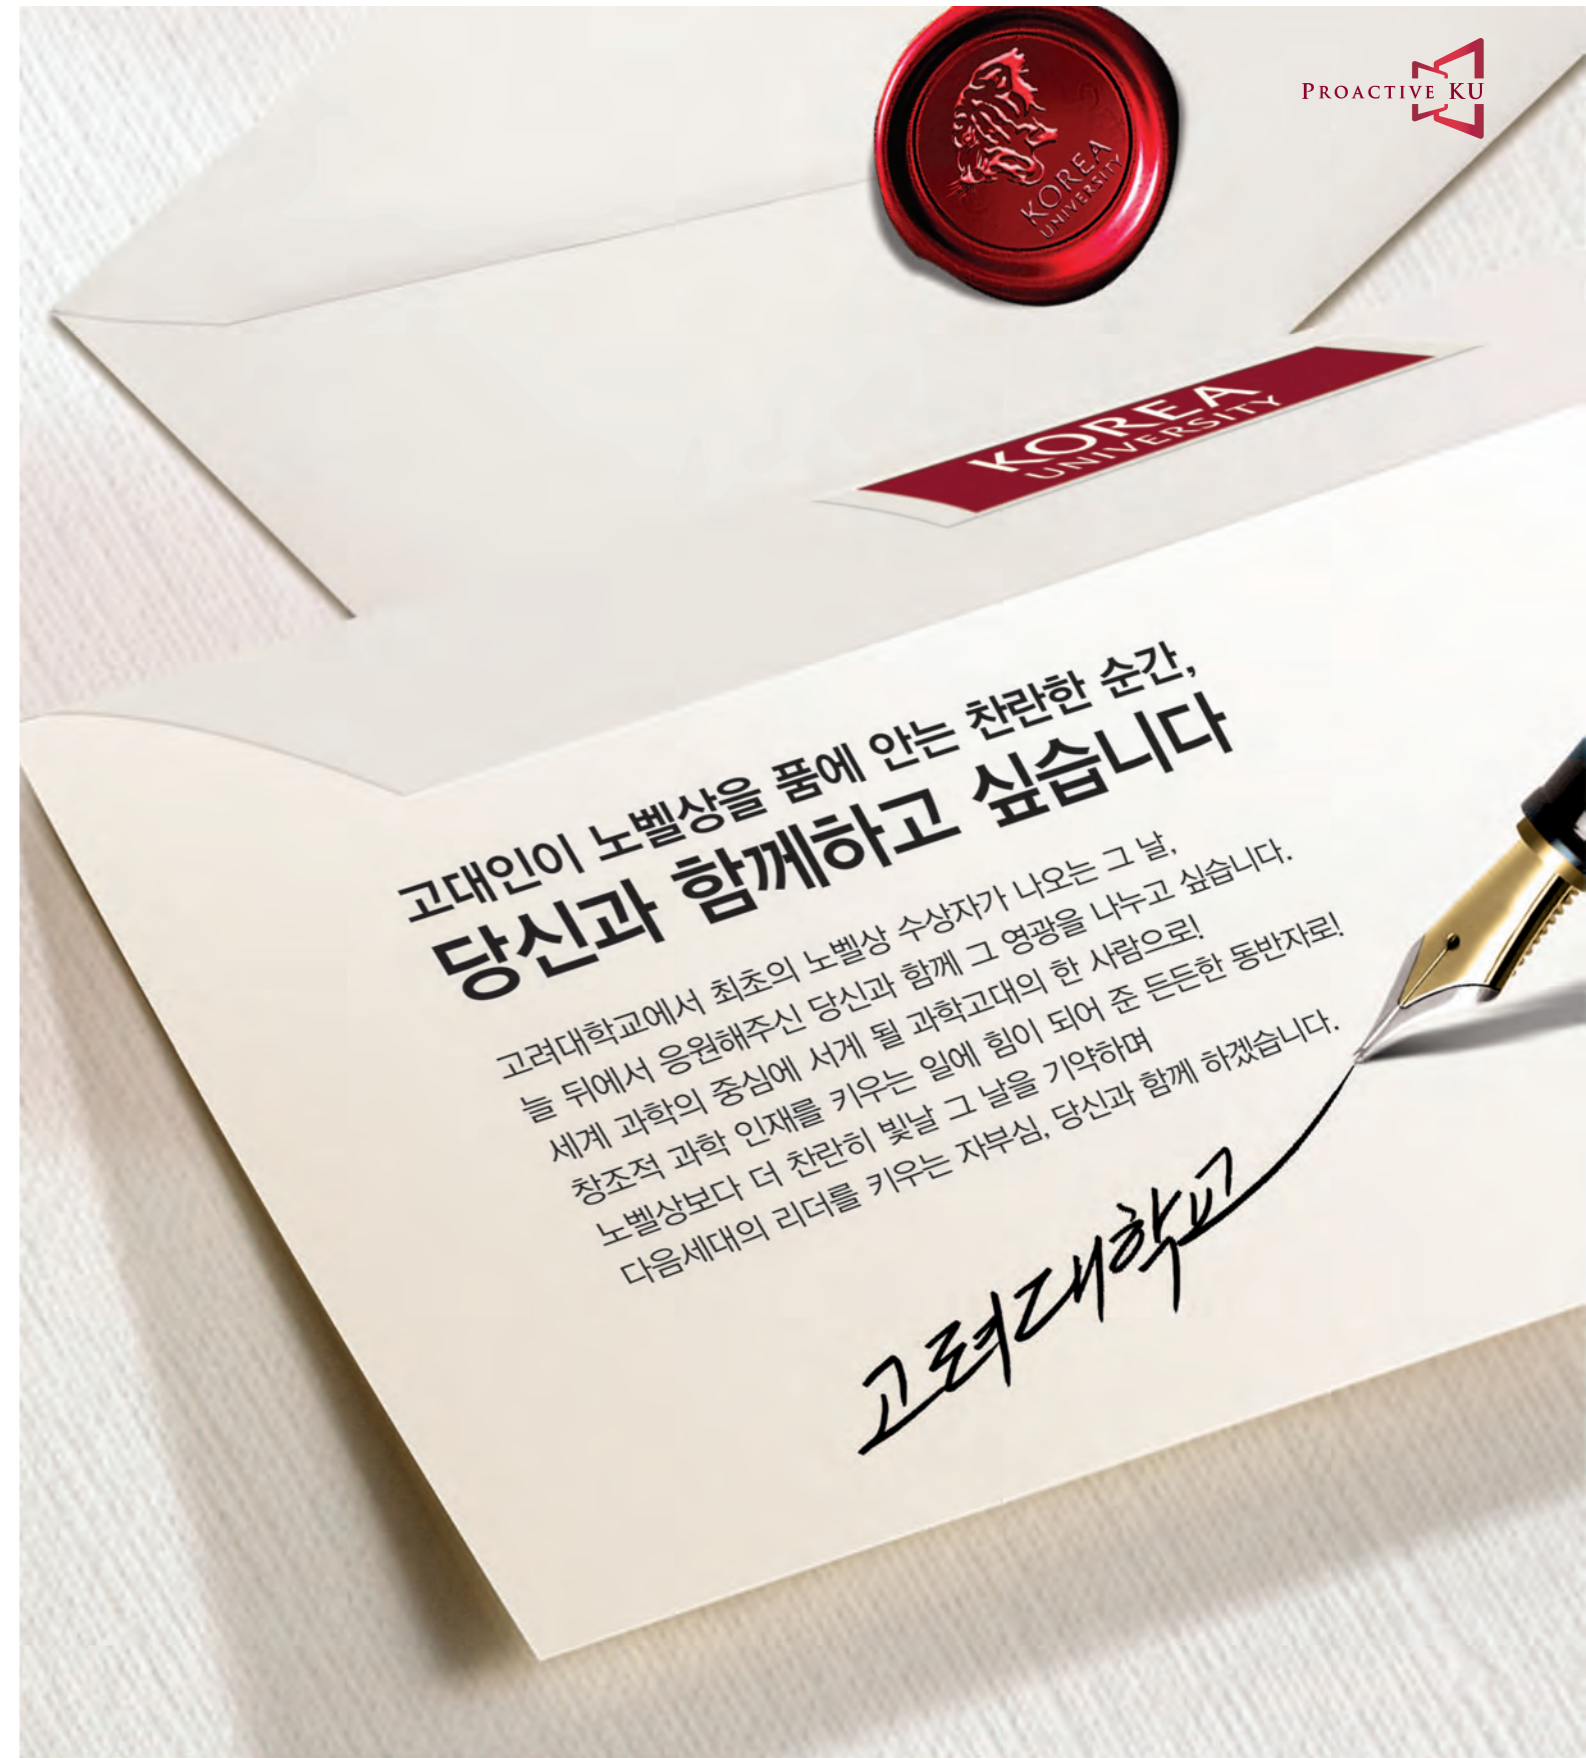 PROACTIVE KU
KOREA
UNIVERSITY
KOREA
UNIVERSITY
고대인이 노벨상을 품에 안는 찬란한 순간,
당신과 함께하고 싶습니다
고려대학교에서 최초의 노벨상 수상자가 나오는 그 날,
늘 뒤에서 응원해주신 당신과 함께 그 영광을 나누고 싶습니다.
세계 과학의 중심에 서게 될 과학고대의 한 사람으로!
창조적 과학 인재를 키우는 일에 힘이 되어 준 든든한 동반자로!
노벨상보다 더 찬란히 빛날 그 날을 기약하며
다음세대의 리더를 키우는 자부심, 당신과 함께 하겠습니다.
고려대학교